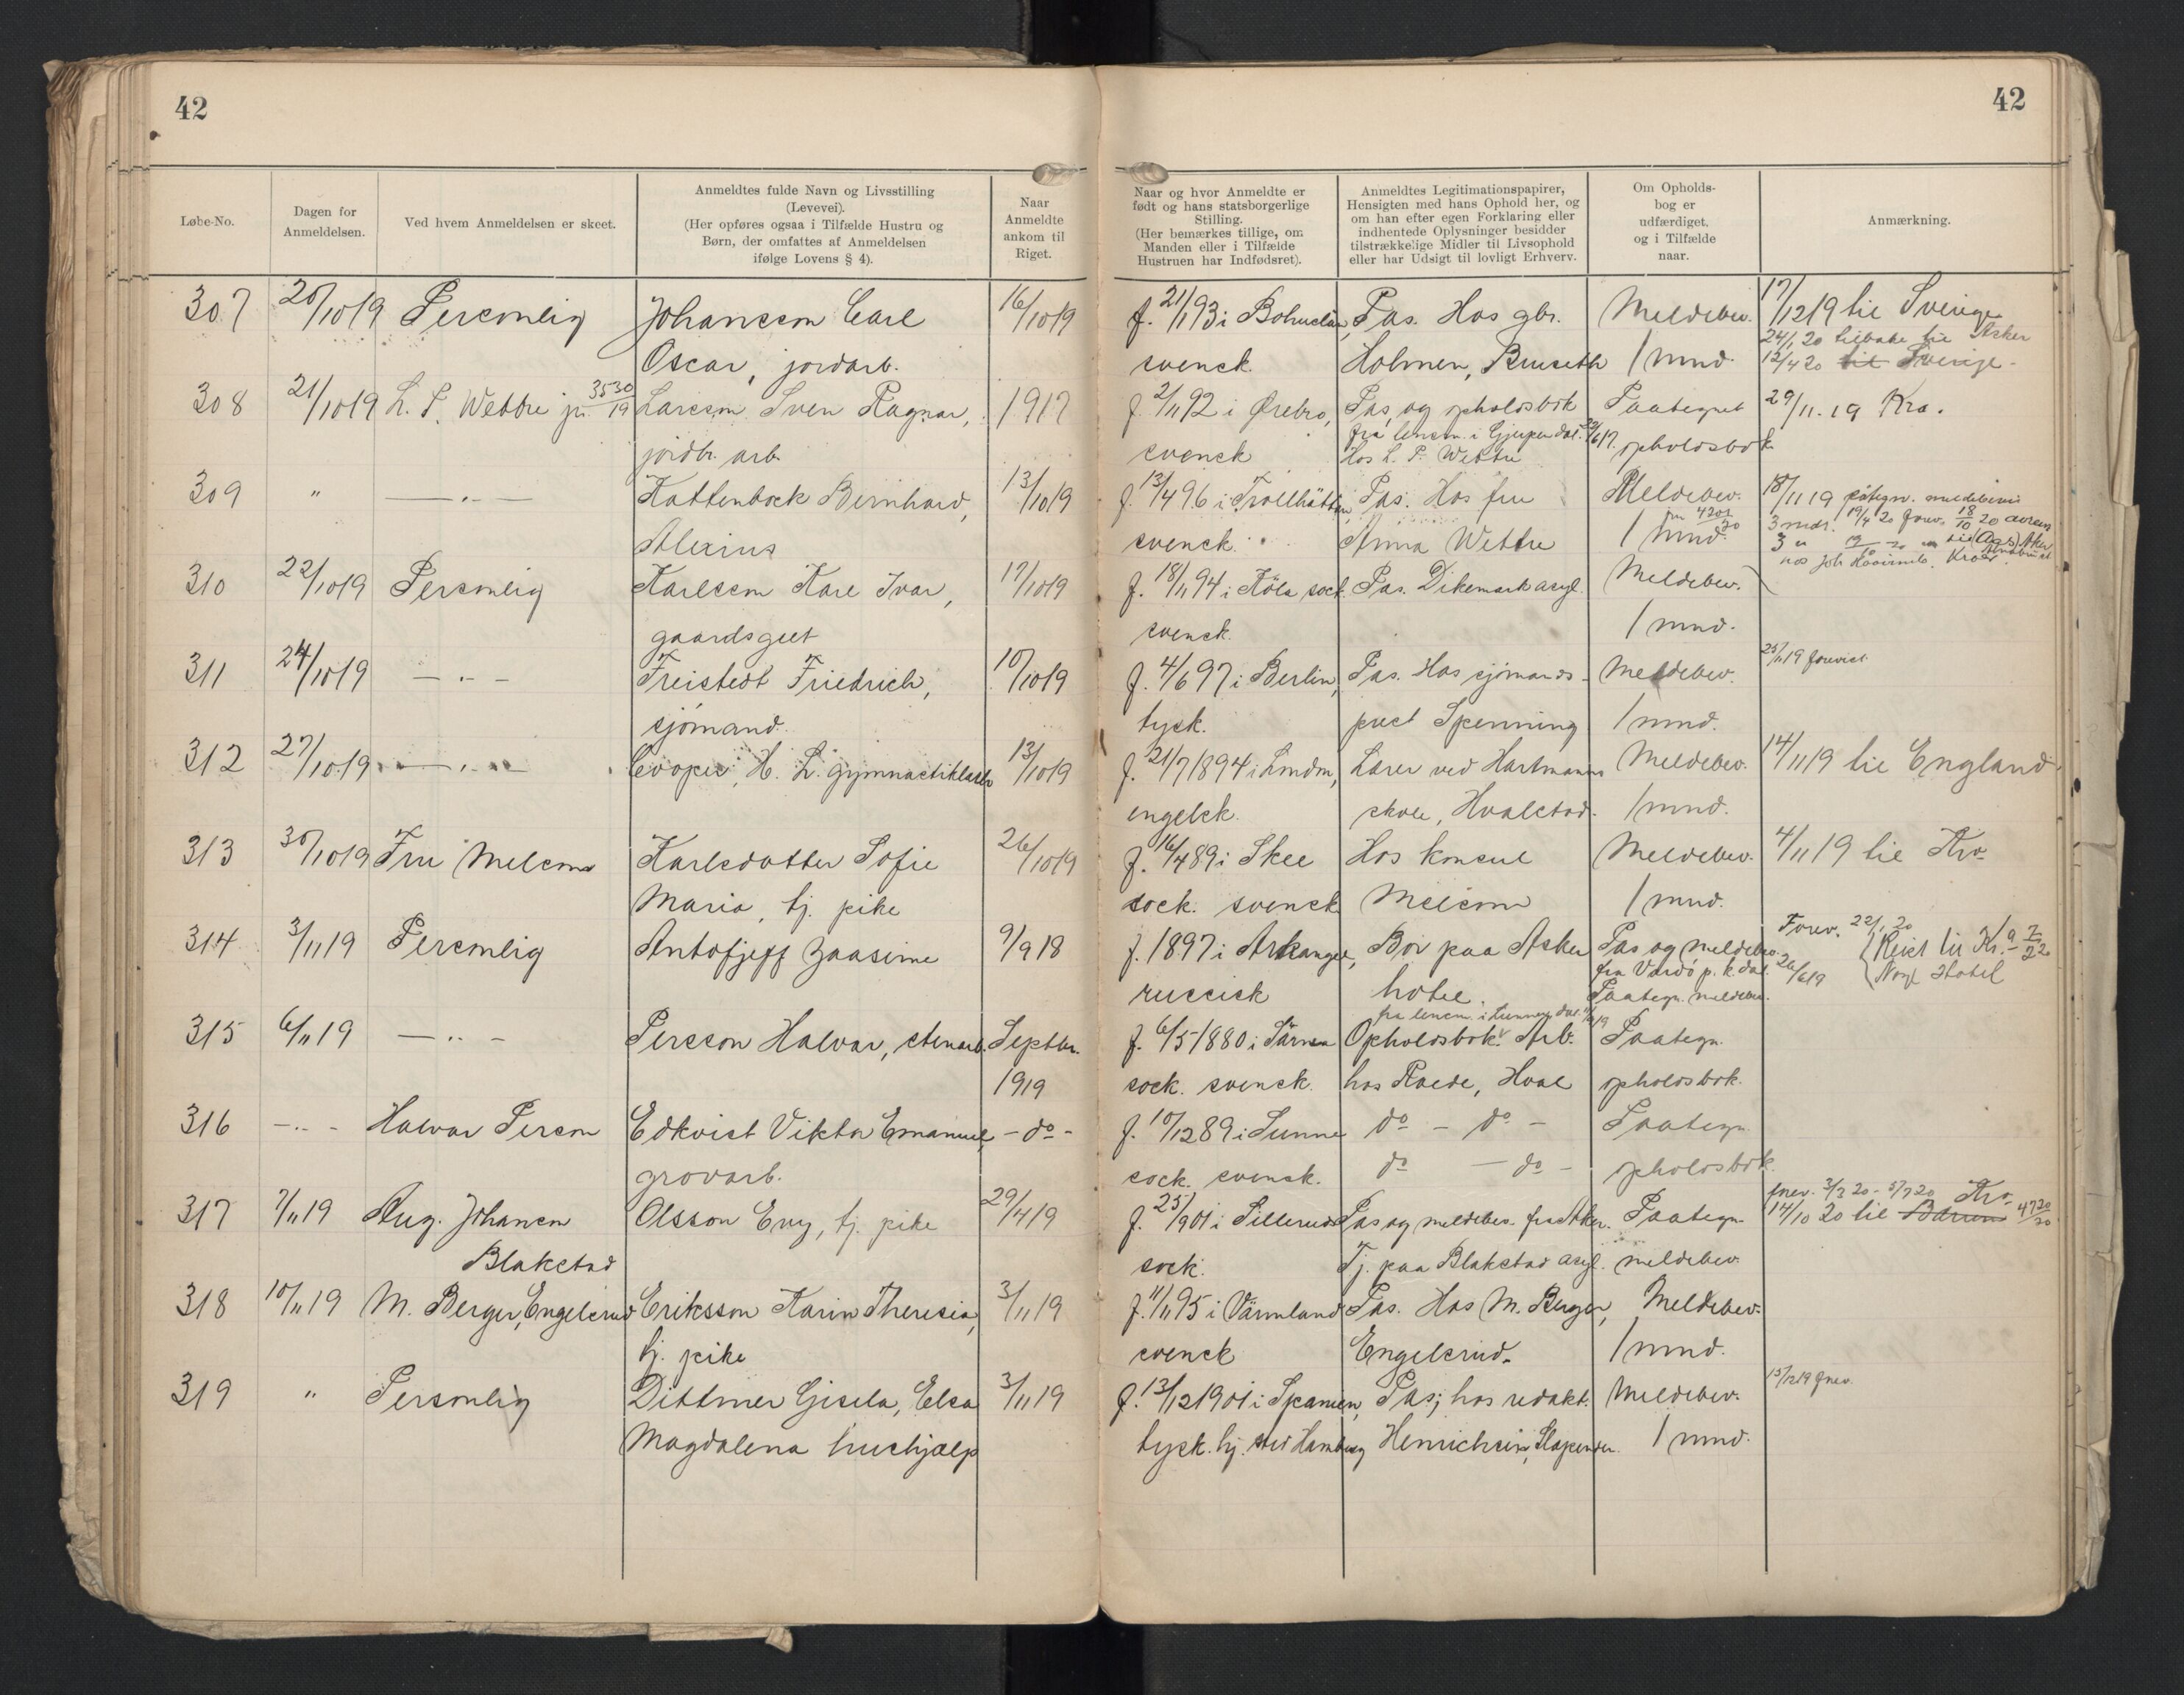 42
42
Løbe-No.
Dagen for
Anmeldelsen.
Ved hvem Anmeldelsen er skeet.
Anmeldtes fulde Navn og Livsstilling
(Levevei).
(Her opføres ogsaa i Tilfælde Hustru og
Børn, der omfattes af Anmeldelsen
ifølge Lovens § 4).
Naar
Anmeldte
ankom til
Riget.
Naar og hvor Anmeldte er
født og hans statsborgerlige
Stilling.
(Her bemærkes tillige, om
Manden eller i Tilfælde
Hustruen har Indfødsret).
Anmeldtes Legitimationspapirer,
Hensigten med hans Ophold her, og
om han efter egen Forklaring eller
indhentede Oplysninger besidder
tilstrækkelige Midler til Livsophold
eller har Udsigt til lovligt Erhverv.
Om Opholds-
bog er
udfærdiget,
og i Tilfælde
naar.
Anmærkning.
307 20/10 19 Personlig Johansson Carl 16/10 19 f. 21/1 93 i Bohuslän, Pas. Hos gbr. Meldebev. 17/12 19 til Sverige
24/1 20 tilbake til Asker
Oscar, jordarb. svensk. Holmen, Bruseth 1 mnd. 12/4 20 til Sverige.
308 21/10 19 L. P. Wettre jr. 3530/19 Larsson Sven Ragnar, 1917 f. 2/11 92 i Ørebro, Pas og opholdsbok Paategnet 29/11.19 Kra.
fra lensm. i Gjerpen dat. 29/6 17.
jordbr. arb. svensk Hos L. P. Wettre opholdsbok
309 " — " — Kattenbock Bernhard, 13/10 19 f. 13/4 96 i Trollhättan, Pas. Hos fru Meldebev. 18/11 19 påtegn. meldebevis
Alexius svensk. Anna Wettre 1 mnd. 3 mdr. 19/4 20 forev. 18/10 20
310 22/10 19 Personlig Karlsson Karl Ivar, 17/10 19 f. 18/11 94 i Köla sock. Pas. Dikemark asyl. Meldebev.
gaardsgut svensk. 1 mnd.
311 24/10 19 — " — Freistedt Friedrich, 10/10 19 f. 4/6 97 i Berlin, Pas. Hos sjømands- Meldebev. 25/11 19 forevist
sjømand. tysk. prest Spenning 1 mnd.
312 27/10 19 — " — Cooper, H. L. gymnastiklærer 13/10 19 f. 21/7 1894 i London, Lærer ved Hartmanns Meldebev. 14/11 19 til England.
engelsk. skole, Hvalstad. 1 mnd.
313 30/10 19 Fru Melsom Karlsdotter Sofie 26/10 19 f. 16/4 89 i Skee Hos konsul Meldebev. 4/11 19 til Kra
Maria, tj. pike sock. svensk Melsom 1 mnd.
314 3/11 19 Personlig Antofjeff Zaasime 9/9 18 f. 1897 i Arkangel, Bor paa Asker Pas og meldebev. Forev. 22/1 20
fra Vardø p. k. dat. 26/6 19 Reist til Kr. 9-2/22
russisk hotel. Paategn. meldebev. Norg Hotel
315 6/11 19 — " — Persson Halvar, stenarb. Septbr. f. 6/5 1880 i Särna Opholdsbok. Arb. Paategn.
1919 sock. svensk. hos Roede, Hval opholdsbok.
316 — " — Halvar Person Edkvist Viktor Emanuel, — do — f. 10/12 89 i Sunne do — do — Paategn.
grovarb. sock. svensk. do — do — opholdsbok.
317 7/11 19 Aug. Johansen Olsson Evy, tj. pike 29/4 19 f. 25/1 901 i Sillerud Pas og meldebev. fra Aker. Paategn. forev. 3/3 20 - 5/7 20 Kra
14/10 20 til Bærum 4720/20
Blakstad sock. Tj. paa Blakstad asyl. meldebev.
318 10/11 19 M. Berger, Engelsrud Eriksson Karin Theresia, 3/11 19 f. 11/11 95 i Värmland Pas. Hos M. Berger, Meldebev.
tj. pike svensk Engelsrud. 1 mnd.
319 " Personlig Dittmer Gisela, Elsa 3/11 19 f. 13/12 1901 i Spanien, Pas; hos redakt. Meldebev. 15/12 19 forev.
Magdalena hushjælp tysk. hj. sted Hamburg Henrichsen, Slependen. 1 mnd.